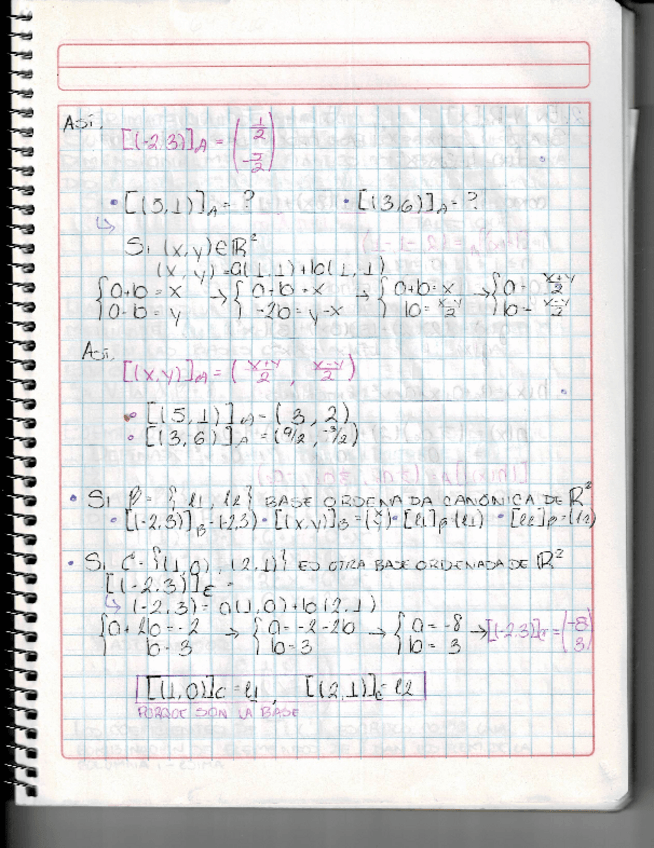 Así.
[(-2,3)]_A = (1/2, -5/2)
• [(5,1)]_A = ? • [(3,6)]_A = ?
↳ Si (x,y)∈ℝ²
(x,y)=a(1,1)+b(1,1)
{a+b=x → {a+b=x → {a+b=x → {a= x+y/2
{a-b=y {-2b=y-x {b= x-y/2 {b= x-y/2
Así.
[(x,y)]_A = (x+y/2, x-y/2)
• [(5,1)]_A = (3, 2)
• [(3,6)]_A = (9/2, -3/2)
• Si β = {e1, e2} BASE ORDENADA CANÓNICA DE ℝ²
• [(-2,3)]_B = (-2,3) • [(x,y)]_B = (x y) • [e1]_β = (e1) • [e2]_β = (e2)
• Si C = {(1,0), (2,1)} ES OTRA BASE ORDENADA DE ℝ²
[(-2,3)]_C =
↳ (-2,3) = a(1,0)+b(2,1)
{a+2b=-2 → {a=-2-2b → {a=-8 → [(-2,3)]_C = (-8
b=3 {b=3 {b=3 3)
[(1,0)]_C = e1 , [(2,1)]_C = e2
PORQUE SON LA BASE